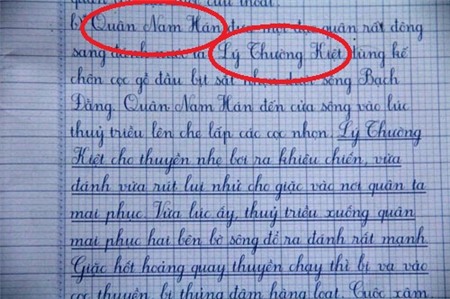 quân rút khỏi cửa thoát.
b) Quân Nam Hán đưa một đạo quân rất đông
sang đánh nước ta. Lý Thường Kiệt dùng kế
chôn cọc gỗ đầu bịt sắt nhọn dưới sông Bạch
Đằng. Quân Nam Hán đến cửa sông vào lúc
thuỷ triều lên che lấp các cọc nhọn. Lý Thường
Kiệt cho thuyền nhẹ bơi ra khiêu chiến, vừa
đánh vừa rút lui nhử cho giặc vào nơi quân ta
mai phục. Vừa lúc ấy, thuỷ triều xuống quân
mai phục hai bên bờ sông đổ ra đánh rất mạnh.
Giặc hốt hoảng quay thuyền chạy thì bị va vào
cọc thuyền bị thủng đắm hàng loạt. Cuộc xâm